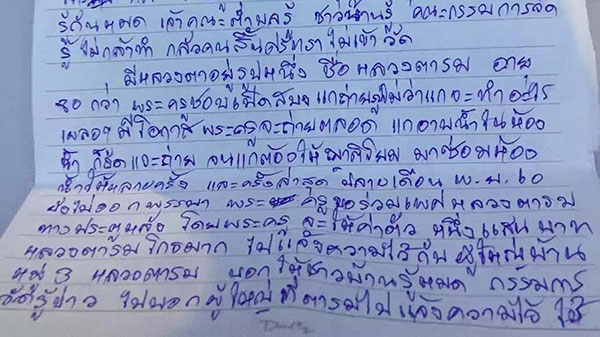 รู้กันหมด เจ้าคณะตำบลรู้ ชาวบ้านรู้ คณะกรรมการวัด
รู้ ไม่กล้าทำ กลัวคนสิ้นศรัทธา ไม่เข้าวัด
มีหลวงตาอยู่รูปหนึ่ง ชื่อ หลวงตารม อายุ
๖๐ กว่า พระครูชอบ แกถ่ายรูปไม่ว่าแกจะทำอะไร
เผลอๆ มีโอกาส พระครูจะถ่ายตลอด แกอาบน้ำในห้อง
น้ำ ก็ แอบถ่าย จนแกต้องให้ มาซ่อมห้อง
น้ำให้หลายครั้ง และครั้งล่าสุด ปลายเดือน พ.ย. ๖๐
ยังไม่ออกพรรษา พระครู ขอร่วมเพศหลวงตารม
ทางประตูหลัง โดยพระครู จะให้ค่าตัว หนึ่งแสนบาท
หลวงตารมโกรธมาก ไปแจ้งความไว้กับ ผู้ใหญ่บ้าน
หมู่ 3 หลวงตารม บอกให้ชาวบ้านรู้หมด กรรมการ
วัดรู้ข่าว ไปบอกผู้ใหญ่ที่ตารมไปแจ้งความไว้ ให้